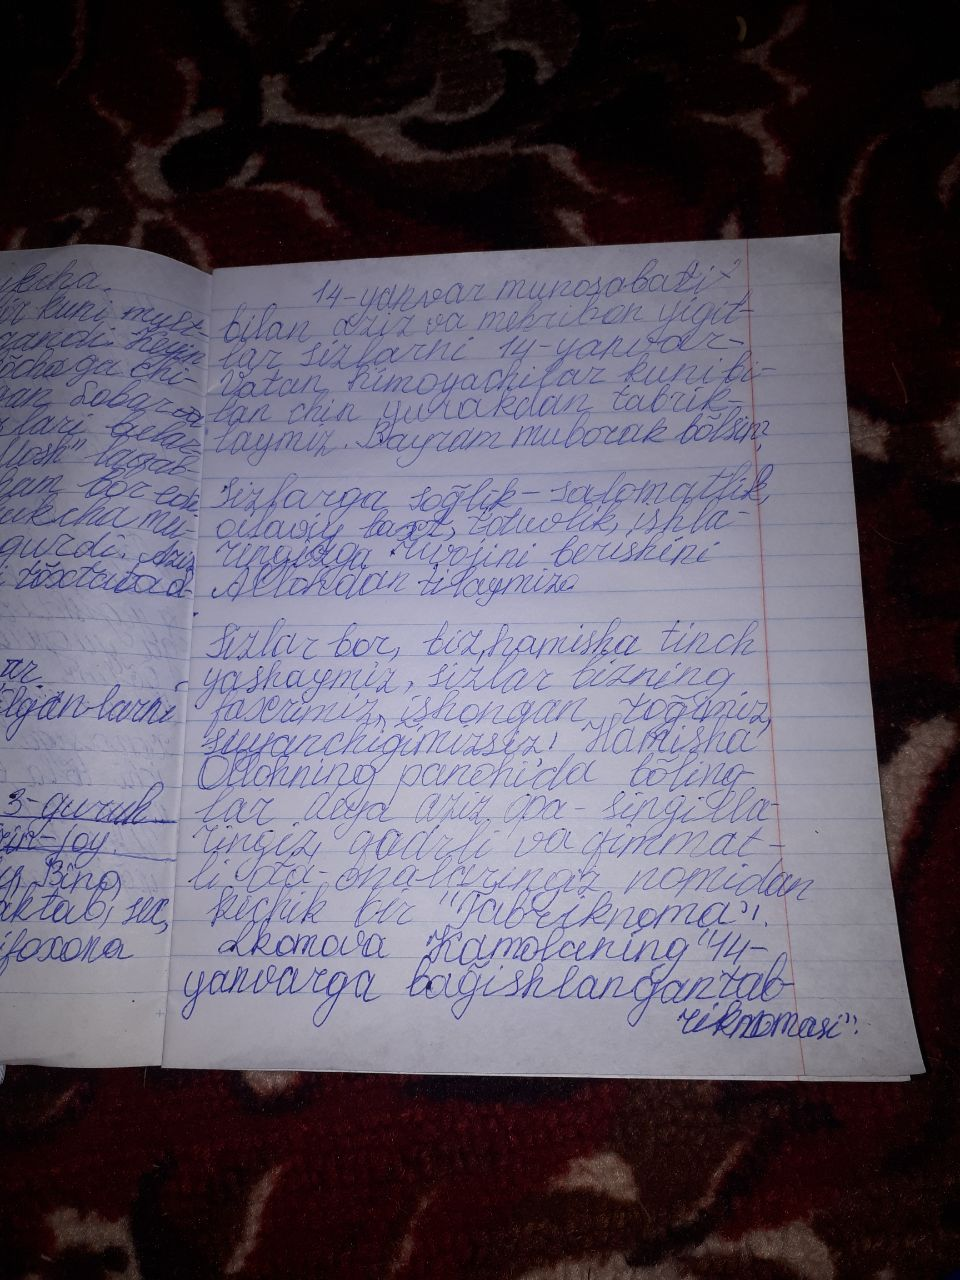 ikcha.
bir kuni must-
qandi. Keyin
ga chi-
gan Lobar va
lari bilan
losh" laqab
ham bor edi
akcha mu-
gurdi. Aziz
ar
ilgan-larni
3-guruh
joy.
Bino,
aktab, sex,
ifoxona
14-yanvar munosabati
bilan aziz va mehribon yigit-
lar sizlarni 14-yanvar-
Vatan himoyachilar kuni bi-
lan chin yurakdan tabrik-
laymiz. Bayram muborak bõlsin,
Sizlarga sog̃lik-salomatlik,
oilaviy baxt, omad, ishla-
ringizga rivojini berishini
Allohdan tilaymiz.
Sizlar bor, biz hamisha tinch
yashaymiz, sizlar bizning
faxrimiz, ishongan tog̃imiz,
suyanchig̃imizsiz! Hamisha
Ollohning panohida bõling-
lar deya aziz opa-singilla-
ringiz, qadrli va qimmat-
li ota-onalaringiz nomidan
kichik bir "Tabriknoma".
Ikomova Kamolaning "14-
yanvarga bag̃ishlangan tab-
riknomasi".